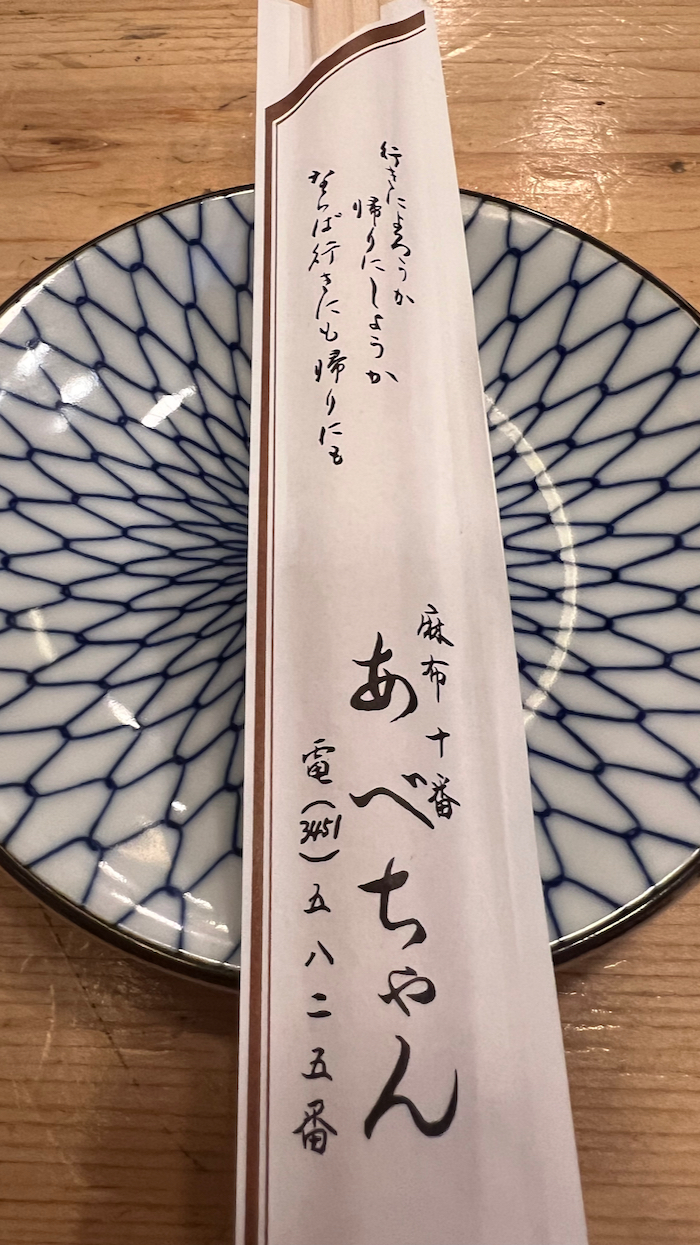 行きによろうか
帰りにしょうか
ならば行きにも帰りにも
麻布十番
あべちゃん
電(3451)五八二五番